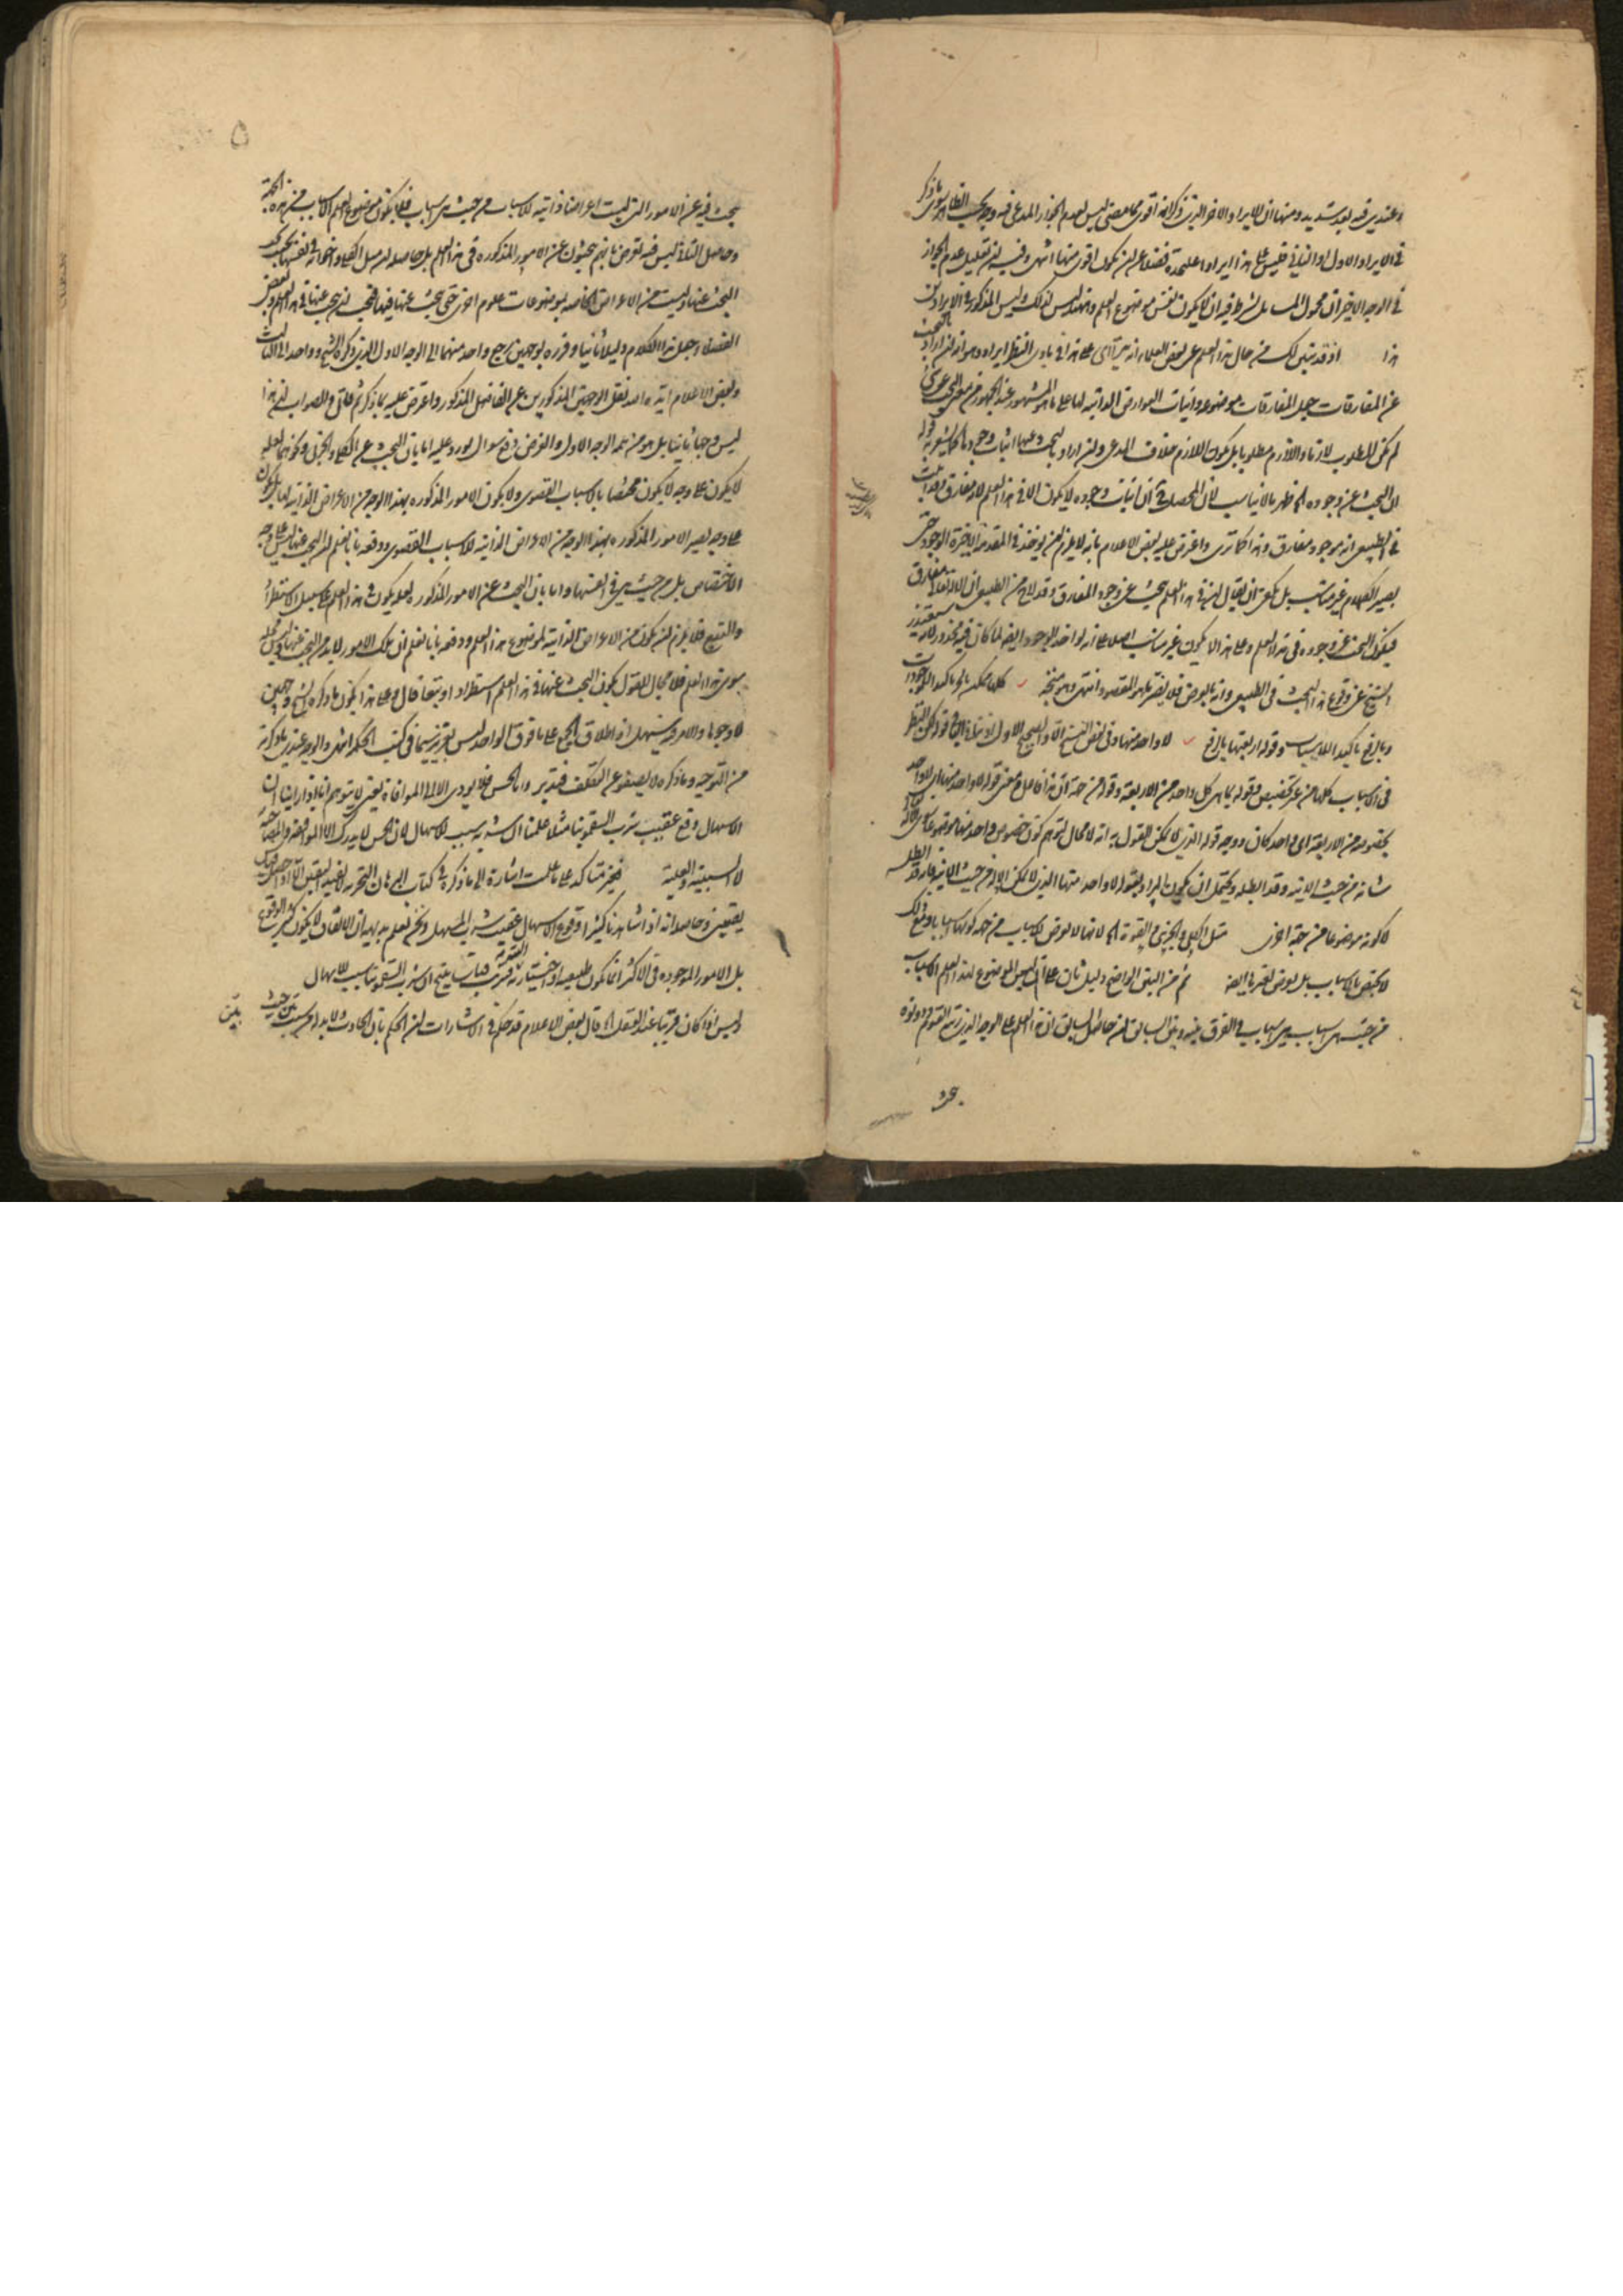 وعندي فيه بعد شديد ومنها ان الايراد الاخر الذي ذكر انه اقوى مما مضى ليس لعدم الجواز المدعى فيه وجه بحسب الظاهر سوى ما ذكر
في الايراد الاول او الثاني فليس على هذا ايرادا عليحده فضلا عن ان يكون اقوى منها انتهى وفيه ان تعليل عدم الجواز
في الوجه الاخير ان محمول المسائل يشترط فيه ان لا يكون نفس موضوع العلم وليس المذكور في الايرادين
هذا اذ قد تبين لك من حال هذا العلم عن بعض العلماء انه يتراءى على هذا في بادي النظر ايراد وهو انه ان اراد بالبحث
عن المفارقات جعل المفارقات موضوعا واثبات العوارض الذاتية لها على ما هو المشهور عند الجمهور من معنى البحث عن شيء
لم يكن المطلوب لازما واللازم مطلوبا بل يكون اللازم خلاف المدعى وان اراد بالبحث عنها اثبات وجودها كما يشعر به قوله
ان البحث عن وجوده الخ فظهر بالانياسب لان المحصل ان اثبات وجوده لا يكون الا في هذا العلم لانه مفارق وقد اثبت
في الطبيعي انه موجود مفارق وهذا كما ترى واعترض عليه بعض الاعلام بانه لا يلزم ان يوخذ في المقدمة الاخيرة الوجود حتى
يصير الكلام غير مناسب بل يكفي ان يقال انه في هذا العلم يبحث عن وجود المفارق وقد لاح من الطبيعي ان الاله تعالى مفارق
فيكون البحث عن وجوده في هذا العلم وعلى هذا لا يكون غير مناسب اصلا على انه لو اخذ الوجود ايضا لما كان فيه محذور لانه سيعتذر
الشيخ عن وقوع هذا البحث في الطبيعي وانه بالعرض فلا يضر بما هو المقصود انتهى وهو متجه كلها ممكن بالجر تاكيد للموجودات
وبالرفع تاكيد الاسباب وقوله اربعتها بالرفع لا واحد منها وفي بعض النسخ الا واحد والصحيح الاول قوله لكن النظر
في الاسباب كلها من غير تخصيص فقوله بما هي كل واحد من الاربعة وقوله من جهة ان هذا فاعل معنى قوله لا واحد منها اي لا واحد
بخصوصه من الاربعة اي واحد كان ووجه قوله الذي لا يمكن القول به انه لا مجال لتوهم كون خصوص واحد منها موضوعا
شانه من حيث الانية وقد ابطله ويحتمل ان يكون المراد بقوله لا واحد منها الذي لا يمكن الا من حيث الانية فانه قد ابطله
لا كونه موضوعا من جهة اخرى مثل الكلي والجزئي والقوة الخ لانها لا تعرض الاسباب من جهة كونها اسبابا ومع ذلك
لا يختص بالاسباب بل يعرض لغيرها ايضا ثم من البين الواضح دليل ثان على انه ليس الموضوع لهذا العلم الاسباب
من حيث هي اسباب هي اسباب في الفرق بينه وبين السابق ان حاصل السابق ان هذا العلم على الوجه الذي رتبه القوم ودونوه
يبحث
يبحث فيه عن الامور التي ليست اعراضا ذاتية للاسباب من حيث هي اسباب فلا يكون موضوع العلم الاسباب من هذه الجهة
وحاصل الثاني ليس فيه تعرض بانهم يبحثون عن الامور المذكورة في هذا العلم بل حاصله ان مثل الكلي واخواته في نفسها يجب
البحث عنها وليست من الاعراض الخاصة بموضوعات علوم اخرى حتى يبحث عنها فيها فيجب ان يبحث عنها في هذا العلم وبعض
الفضلاء جعل هذا الكلام دليلا ثانيا وقرره بوجهين يرجع واحد منهما الى الوجه الاول الذي ذكره الشيخ وواحد الى الثالث
وبعض الاعلام ايده الله نقل الوجهين المذكورين عن الفاضل المذكور واعترض عليه بما ذكر ثم قال والصواب ان هذا
ليس وجها ثانيا بل هو من تتمة الوجه الاول والغرض دفع سوال يورد عليه اما بان البحث عن الكلي والجزئي ونحوهما لعله
لا يكون على وجه لا يكون مختصا بالاسباب القصوى ولا يكون الامور المذكورة بهذا الوجه من الاعراض الذاتية لها بل يكون
على وجه يصير الامور المذكورة بهذا الوجه من الاعراض الذاتية للاسباب القصوى ودفعه بانا نعلم ان البحث عنها ليس على وجه
الاختصاص بل من حيث هي في نفسها واما بان البحث عن الامور المذكورة لعله يكون في هذا العلم على سبيل الاستطراد
والتبع فلا يلزم ان يكون من الاعراض الذاتية لموضوع هذا العلم ودفعه بانا نعلم ان تلك الامور لا بد من البحث عنها وليس محله
سوى هذا العلم فلا مجال للقول بكون البحث عنها في هذا العلم استطرادا وتبعا قال وعلى هذا يكون ما ذكره الشيخ وجهين
لا وجها والامر فيه سهل اذ اطلاق الجمع على ما فوق الواحد ليس بعزيز سيما في كتب الحكمة انتهى والوجه عندي ما ذكرته
من التوجيه وما ذكره لا يصفو عن التكلف فتدبر واما الحس فلا يؤدي الا الى الموافاة يعني لا يتوهم انا اذا راينا ان
الاسهال وقع عقيب شرب السقمونيا مثلا علمنا ان شربه سبب للاسهال لان الحس لا يدرك الا الموافاة والمصاحبة
لا السببية والعلية فغير متاكد على ما علمت اشارة الى ما ذكره في كتاب البرهان ان التجربة لا تفيد اليقين الا اذا حصل قياس
يقيني وحاصله انه اذا شاهدنا كثيرا وقوع الاسهال عقيب شرب المسهل ونحن نعلم بديهة ان الاتفاق لا يكون كثير الوقوع
بل الامور الموجودة في الاكثر انما يكون طبيعية او اختيارية فترتب قياس ينتج ان شرب السقمونيا سبب للاسهال
وليس اذا كان قريبا عند العقل الخ قال بعض الاعلام قد حكم في الاشارات ان الحكم بان الحادث لا بد له من سبب بين حيث
بين